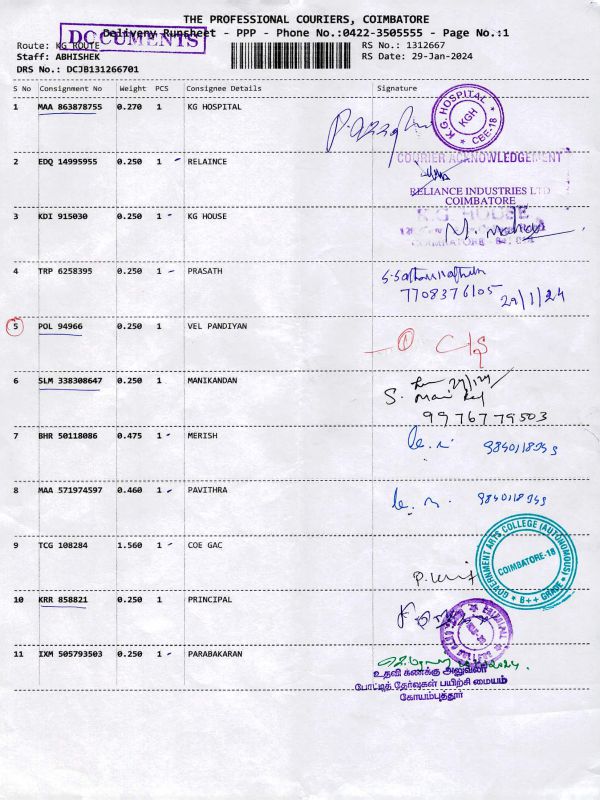 THE PROFESSIONAL COURIERS, COIMBATORE
Delivery Runsheet - PPP - Phone No.:0422-3505555 - Page No.:1
DOCUMENTS
Route: KG ROUTE
RS No.: 1312667
Staff: ABHISHEK
RS Date: 29-Jan-2024
DRS No.: DCJB131266701
S No Consignment No Weight PCS Consignee Details Signature
1 MAA 863878755 0.270 1 KG HOSPITAL
K.G. HOSPITAL KGH CBE-18
2 EDQ 14995955 0.250 1 RELAINCE
COURIER ACKNOWLEDGEMENT
RELIANCE INDUSTRIES LTD
COIMBATORE
3 KDI 915030 0.250 1 KG HOUSE
K.G. HOUSE
4 TRP 6258395 0.250 1 PRASATH
7708376105 29/1/24
5 POL 94966 0.250 1 VEL PANDIYAN
1
6 SLM 338308647 0.250 1 MANIKANDAN
9976779503
7 BHR 50118086 0.475 1 MERISH
8 MAA 571974597 0.460 1 PAVITHRA
9 TCG 108284 1.560 1 COE GAC
GOVERNMENT ARTS COLLEGE (AUTONOMOUS)
COIMBATORE-18
B++ GRADE
10 KRR 858821 0.250 1 PRINCIPAL
11 IXM 505793503 0.250 1 PARABAKARAN
உதவி கணக்கு அலுவலர்
போட்டித் தேர்வுகள் பயிற்சி மையம்
கோயம்புத்தூர்